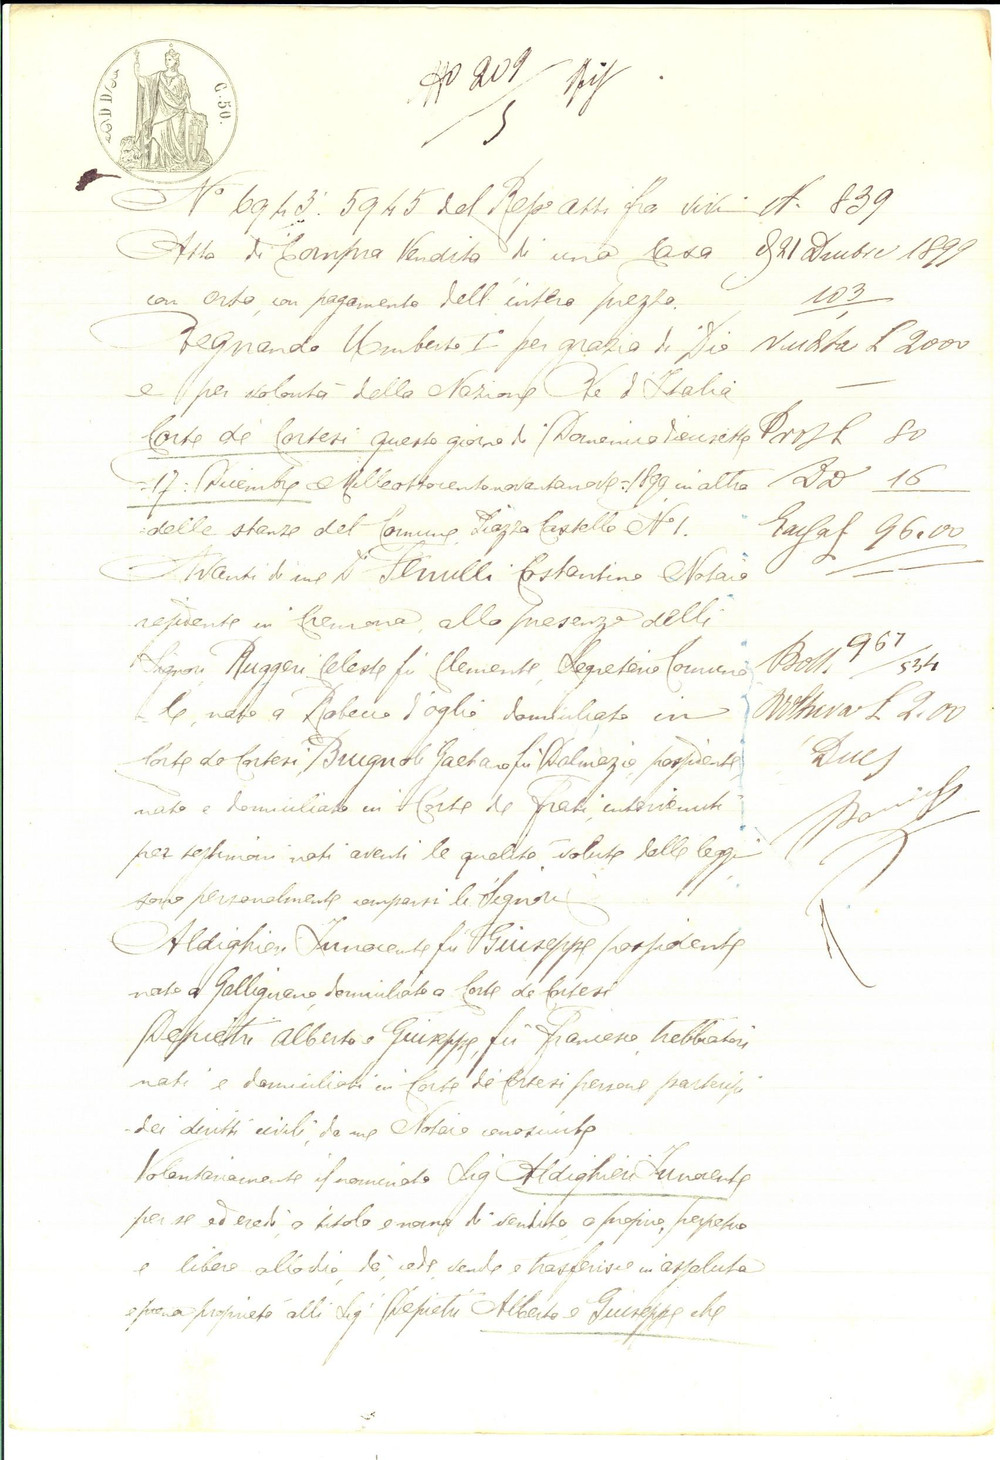 C. 50.
No 209
5
No 6943. 5945 del Rep° atti fra vivi
Atto di Compra Vendita di una Casa
con orto, con pagamento dell'intero prezzo.
Regnando Umberto I° per grazia di Dio
e per volontà della Nazione Re d'Italia
Corte de' Cortesi questo giorno di Domenica diecisette
17. Dicembre Milleottocentonovantanove 1899 in altra
delle stanze del Comune Piazza Castello No 1.
Avanti di me Dr Costantino Notaio
residente in Cremona, alla presenza delli
Signori Ruggeri Celeste fu Clemente, Segretario Comuna
le, nato a Robecco d'oglio domiciliato in
Corte de Cortesi Brugnoli Gaetano fu Dalmazio possidente
nato e domiciliato in Corte de Frati, intervenuti
per testimoni noti aventi le qualità volute dalle leggi
sono personalmente comparsi li Signori
Aldighieri Innocente fu Giuseppe possidente
nato a Gallignano, domiciliato a Corte de Cortesi
Depietri Alberto e Giuseppe, fu Francesco, trebbiatori
nati e domiciliati in Corte de Cortesi persone partecipi
dei diritti civili, da me Notaio conosciute
Volontariamente il nominato Sig Aldighieri Innocente
per se ed eredi, a titolo e nome di vendita, a proprio, perpetuo
e libero allodio, dà, cede, vende e trasferisce in assoluta
e piena proprietà alli Sig Depietri Alberto e Giuseppe che
N. 839
21 Dicembre 1899
103
Vendita L 2000
80
DD 16
96.00
Boll. 967/534
Voltura L 2.00
Due